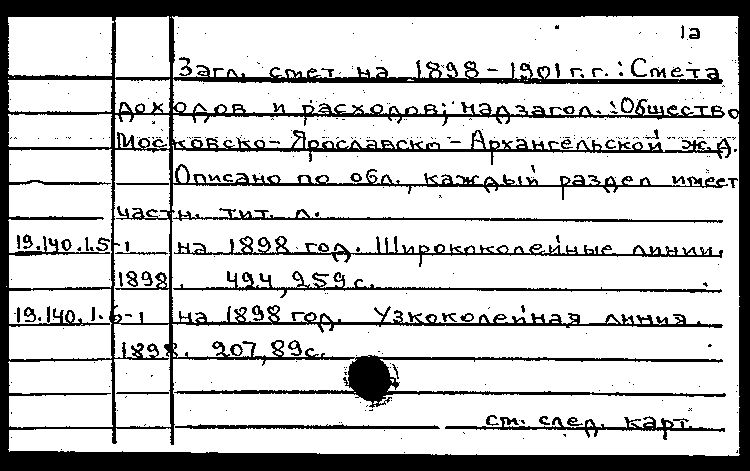 1а
Загл. смет на 1898-1901 г.г.: Смета
доходов и расходов; надзагол.: Общество
Московско-Ярославско-Архангельской ж.д.
Описано по обл., каждый раздел имеет
частн. тит. л.
19.140.1.5-1 на 1898 год. Ширококолейные линии.
1898. 494, 259 с.
19.140.1.6-1 на 1898 год. Узкоколейная линия.
1898. 207, 89 с.
см. след. карт.